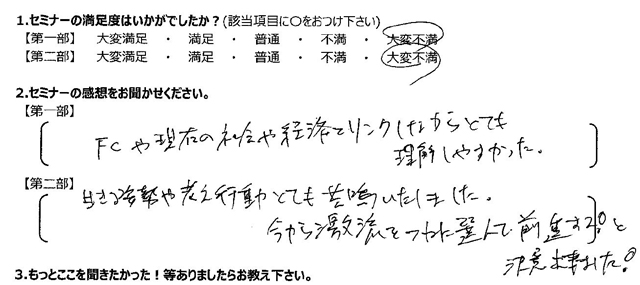 1.セミナーの満足度はいかがでしたか?(該当項目に〇をおつけ下さい)
【第一部】 大変満足 ・ 満足 ・ 普通 ・ 不満 ・ 大変不満
【第二部】 大変満足 ・ 満足 ・ 普通 ・ 不満 ・ 大変不満
2.セミナーの感想をお聞かせください。
【第一部】
FCや現在の社会や経済とリンクしながらとても
理解しやすかった。
【第二部】
生きる姿勢や考え行動とても共鳴いたしました。
今から激流をつねに選んで前進する!と
決意出来ました!
3.もっとここを聞きたかった!等ありましたらお教え下さい。